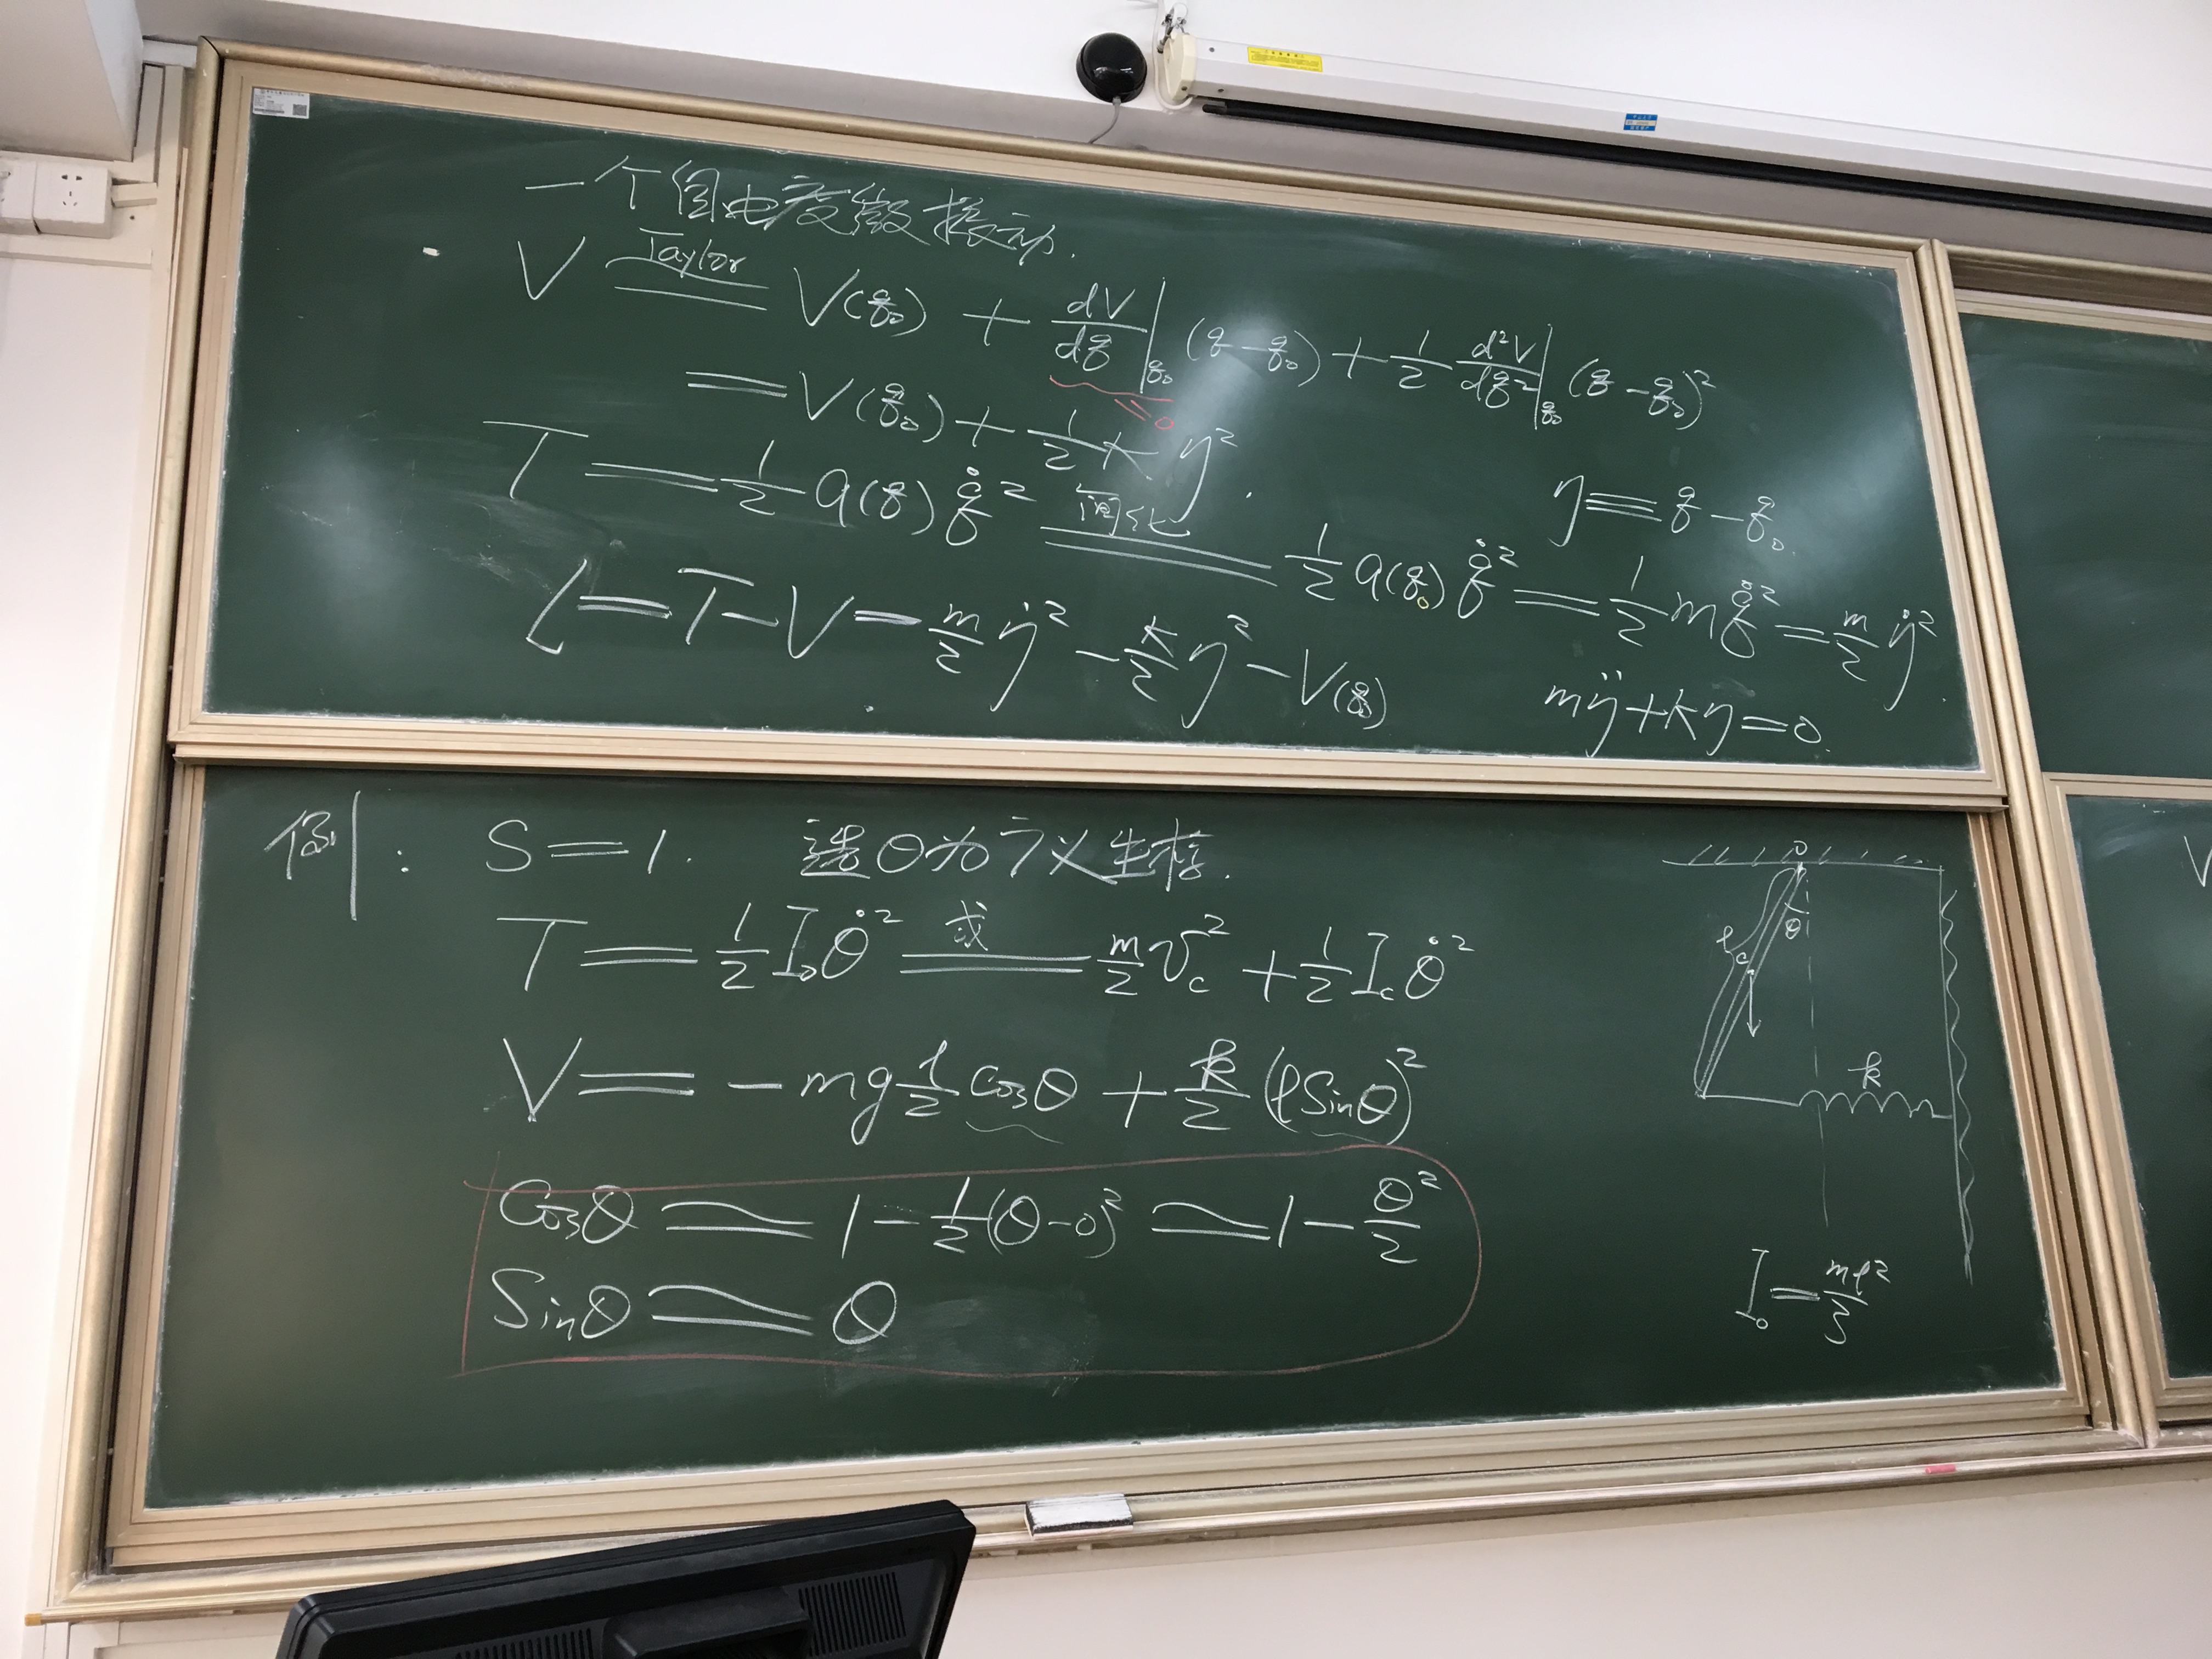 一个自由度微振动.
V \overset{Taylor}{=} V(q₀) + dV/dq|_{q₀} (q-q₀) + 1/2 d²V/dq²|_{q₀} (q-q₀)²
=0
= V(q₀) + 1/2 k η².
η ≡ q-q₀.
T = 1/2 a(q) q̇² \overset{简化}{=} 1/2 a(q₀) q̇² = 1/2 m q̇² = m/2 η̇².
L = T-V = m/2 η̇² - k/2 η² - V(q₀)
mη̈+kη=0.
例: S=1. 选θ为广义坐标.
T = 1/2 I₀θ̇² \overset{或}{=} m/2 v_c² + 1/2 I_c θ̇²
V = -mg l/2 cosθ + k/2 (l sinθ)²
Cosθ ≃ 1-1/2(θ-0)² ≃ 1-θ²/2
Sinθ ≃ θ
O
θ
l
c
k
I₀ = ml²/3
V